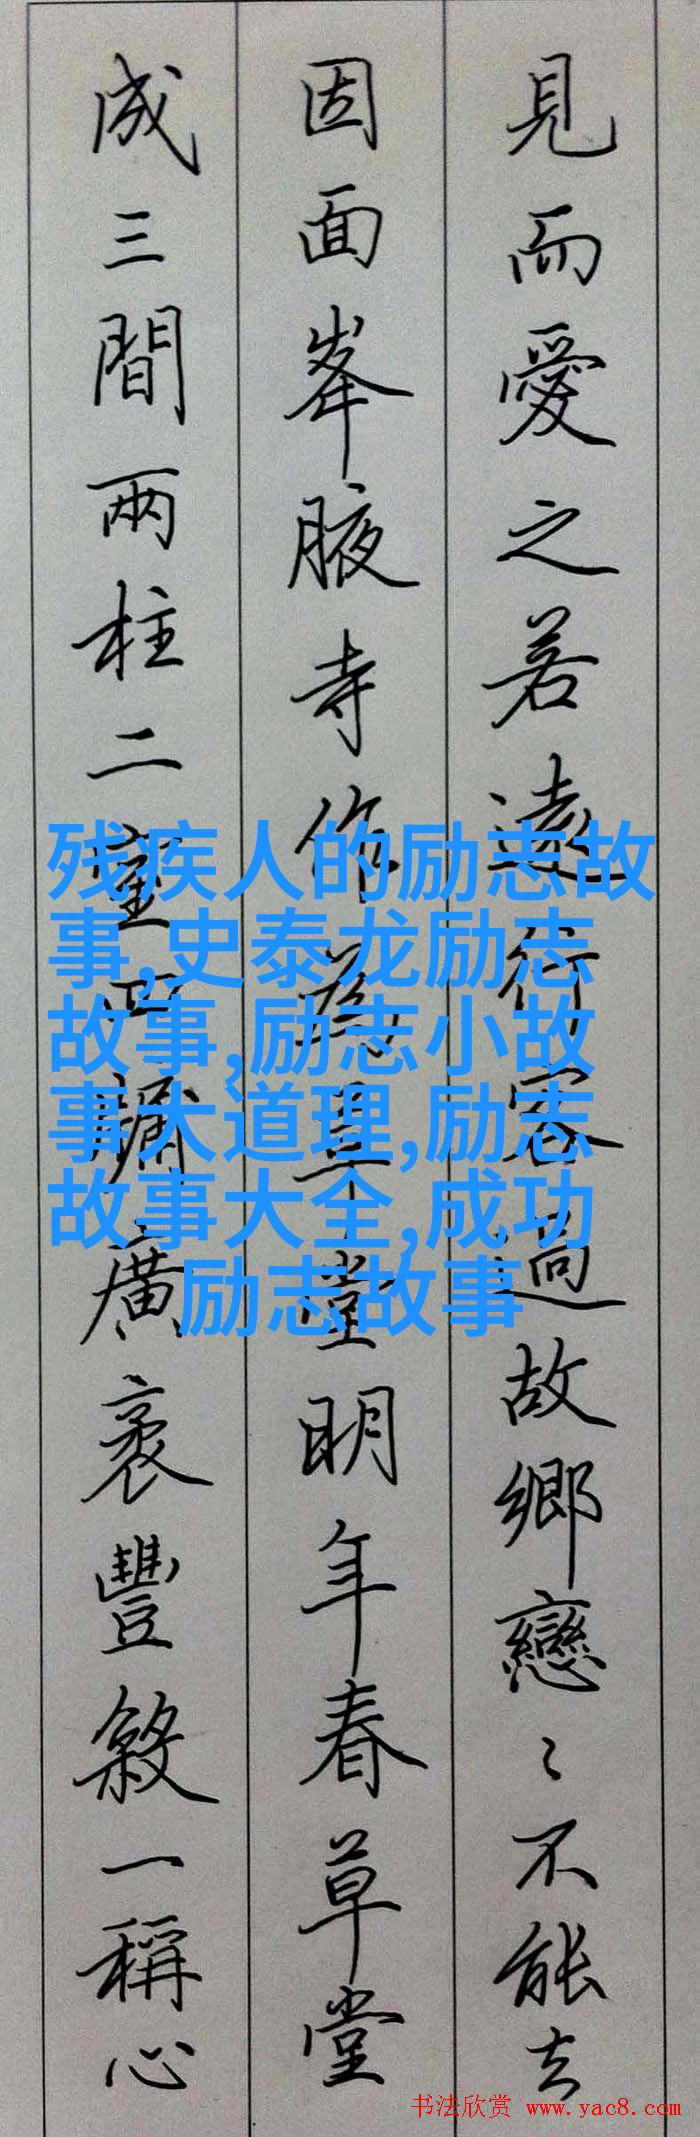 見而愛之若遠行客過故鄉戀〻不能去
因面峯腋寺作為草堂明年春草堂
成三間兩柱二室四牖廣袤豐殺一稱心
残疾人的励志故
事,史泰龙励志
故事,励志小故
事大道理,励志
故事大全,成功
励志故事
书法欣赏 www.yac8.com